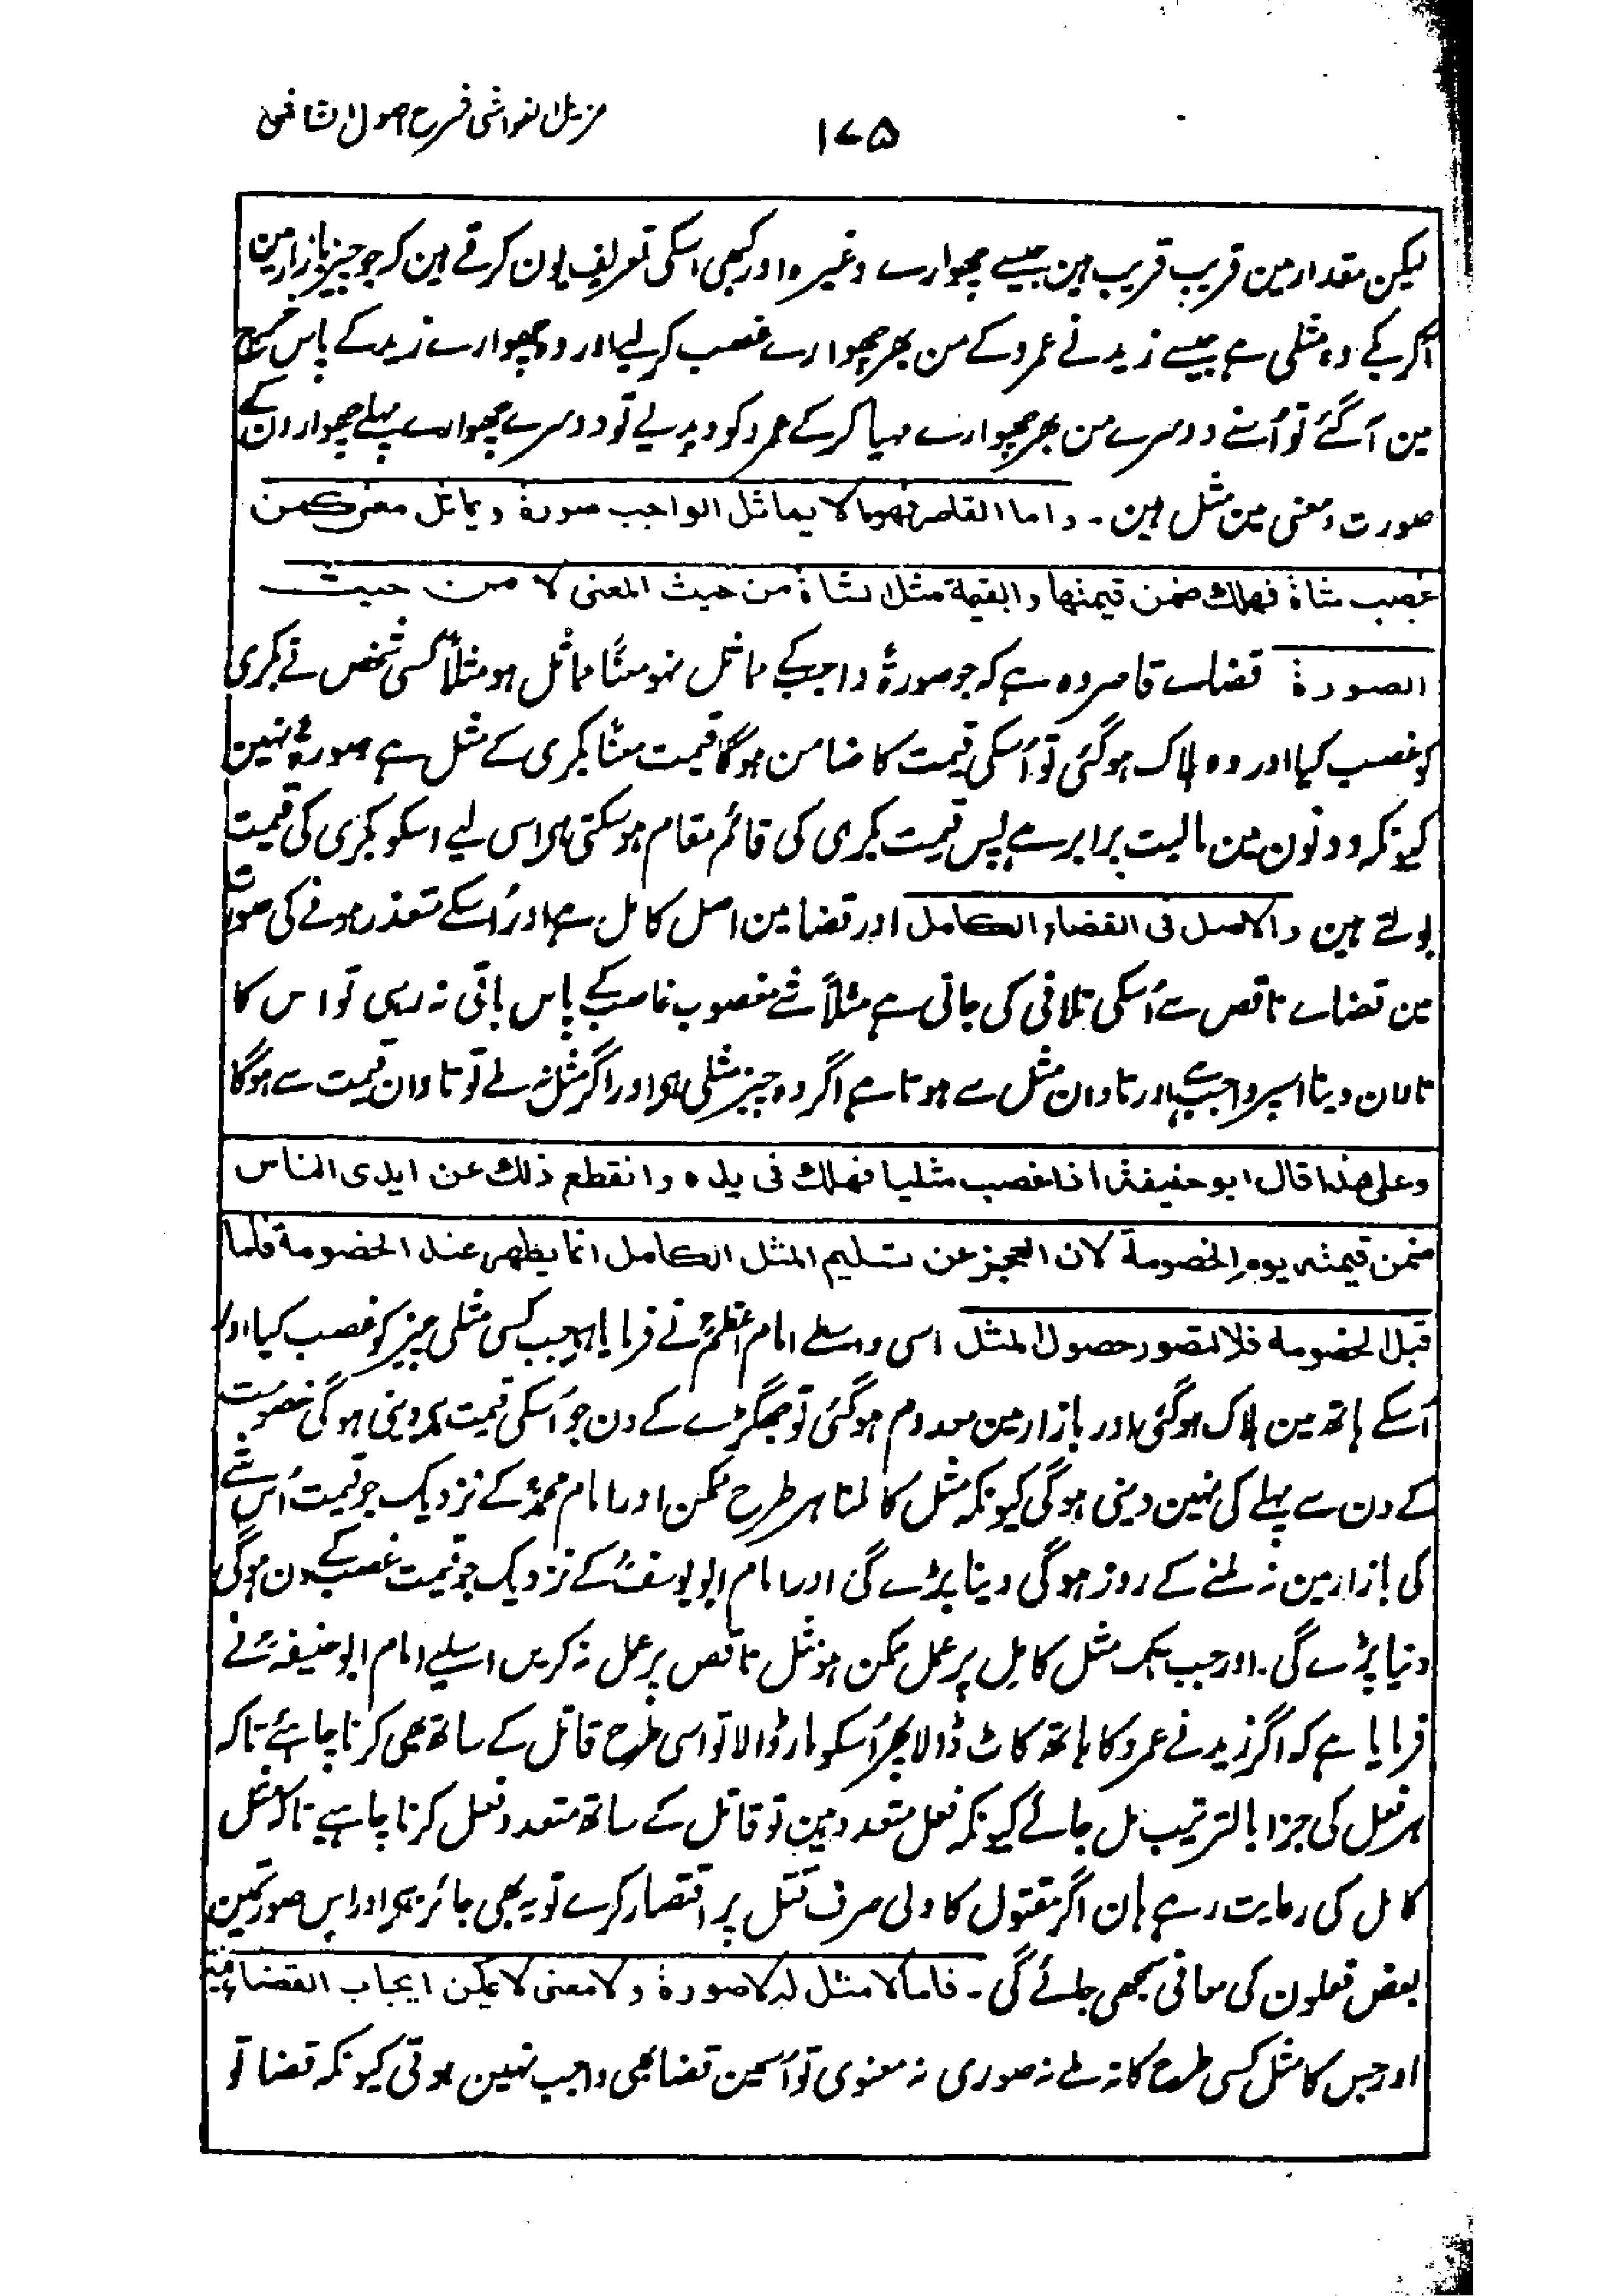 ۱۷۵
مزیل الغواشی شرح اصول الشاشی
لیکن مقدار مین قریب قریب ہین جیسے چھوارے وغیرہ اور کبھی اسکی تعریف یون کرتے ہین کہ جو چیز بازار مین
آکر بکے وہ مثلی ہے جیسے زید نے عمرو کے من بھر چھوارے غصب کر لیے اور وہ چھوارے زید کے پاس خرچ
مین آگئے تو اُسنے دوسرے من بھر چھوارے مہیا کر کے عمرو کو دیدیے تو دوسرے چھوارے پہلے چھوارون کے
صورت و معنی مین مثل ہین۔ واما القاصر فهو ما لا يماثل الواجب صورة ويماثل معنى كمن
غصب شاة فهلكت ضمن قيمتها والقيمة مثل الشاة من حيث المعنى لا من حيث
الصورة قضاے قاصر وہ ہے کہ جو صورۃً واجب کے مماثل نہو معنًا مماثل ہو مثلاً کسی شخص نے بکری
کو غصب کیا اور وہ ہلاک ہوگئی تو اُسکی قیمت کا ضامن ہوگا قیمت معنًا بکری کے مثل ہے صورۃً نہین
کیونکہ دونون مین مالیت برابر ہے پس قیمت بکری کی قائم مقام ہوسکتی ہے اس لیے اسکو بکری کی قیمت
بولتے ہین والاصل فى القضاء الكامل اور قضا مین اصل کامل ہے اور اُسکے متعذر ہونے کی صورت
مین قضاے ناقص سے اُسکی تلافی کی جاتی ہے مثلاً شے مغصوب غاصب کے پاس باقی نہ رہی تو اس کا
تاوان دینا اسپر واجب ہے اور تاوان مثل سے ہوتا ہے اگر وہ چیز مثلی ہو اور اگر مثل نہ ملے تو تاوان قیمت سے ہوگا
وعلى هذا قال ابو حنيفةؒ اذا غصب مثليا فهلك فى يده وانقطع ذلك عن ايدى الناس
ضمن قيمته يوم الخصومة لان العجز عن تسليم المثل الكامل انما يظهر عند الخصومة فاما
قبل الخصومة فلا لتصور حصول المثل اسی واسطے امام اعظمؒ نے فرمایا ہے جب کسی مثلی چیز کو غصب کیا اور
اُسکے ہاتھ مین ہلاک ہوگئی اور بازار مین معدوم ہوگئی تو جھگڑے کے دن جو اُسکی قیمت ہے دینی ہوگی خصومت
کے دن سے پہلے کی نہین دینی ہوگی کیونکہ مثل کا ملنا ہر طرح ممکن اور امام محمدؒ کے نزدیک جو قیمت اُس شے
کی بازار مین نہ ملنے کے روز ہوگی دینا پڑے گی اور امام ابو یوسفؒ کے نزدیک جو قیمت غصب کے دن ہوگی
دینا پڑے گی۔ اور جب تک مثل کامل پر عمل ممکن ہو مثل ناقص پر عمل نہ کریں اسلیے امام ابو حنیفہؒ نے
فرمایا ہے کہ اگر زید نے عمرو کا ہاتھ کاٹ ڈالا پھر اُسکو مار ڈالا تو اسی طرح قاتل کے ساتھ بھی کرنا چاہئے تاکہ
ہر فعل کی جزا بالترتیب مل جائے کیونکہ فعل متعدد ہین تو قاتل کے ساتھ متعدد فعل کرنا چاہیے تاکہ مثل
کامل کی رعایت رہے ہان اگر مقتول کا ولی صرف قتل پر اقتصار کرے تو یہ بھی جائز ہے اور اس صورت مین
بعض فعلون کی معافی سمجھی جائے گی۔ فاما ما لا مثل له لا صورة ولا معنى لا يمكن ايجاب القضاء فيه
اور جس کا مثل کسی طرح کا نہ ملے نہ صوری نہ معنوی تو اُسمین قضا بھی واجب نہین ہوتی کیونکہ قضا تو